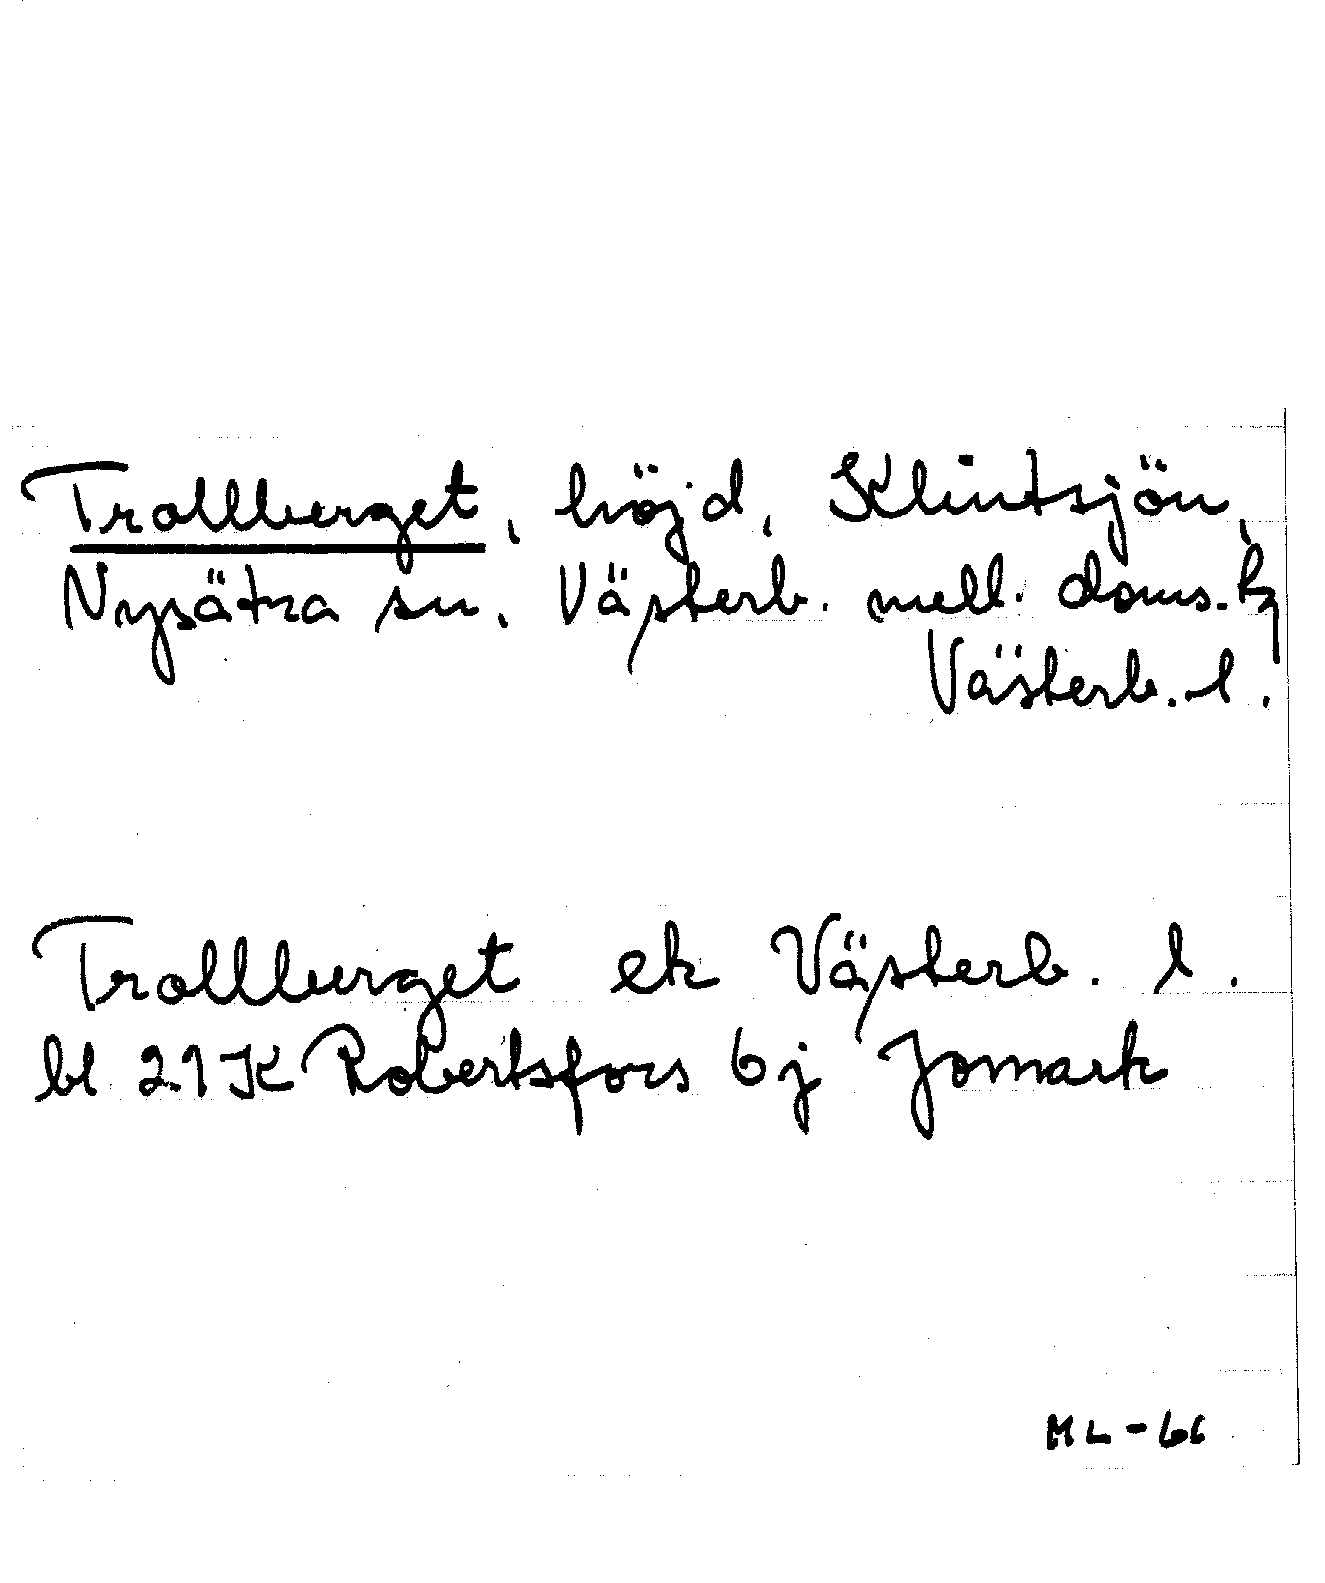 Trollberget, höjd, Klintsjön,
Nysätra sn, Västerb. mell. doms.
Västerb. l.
Trollberget ek Västerb. l.
bl 21K Robertsfors 6j Jomark
ML-66